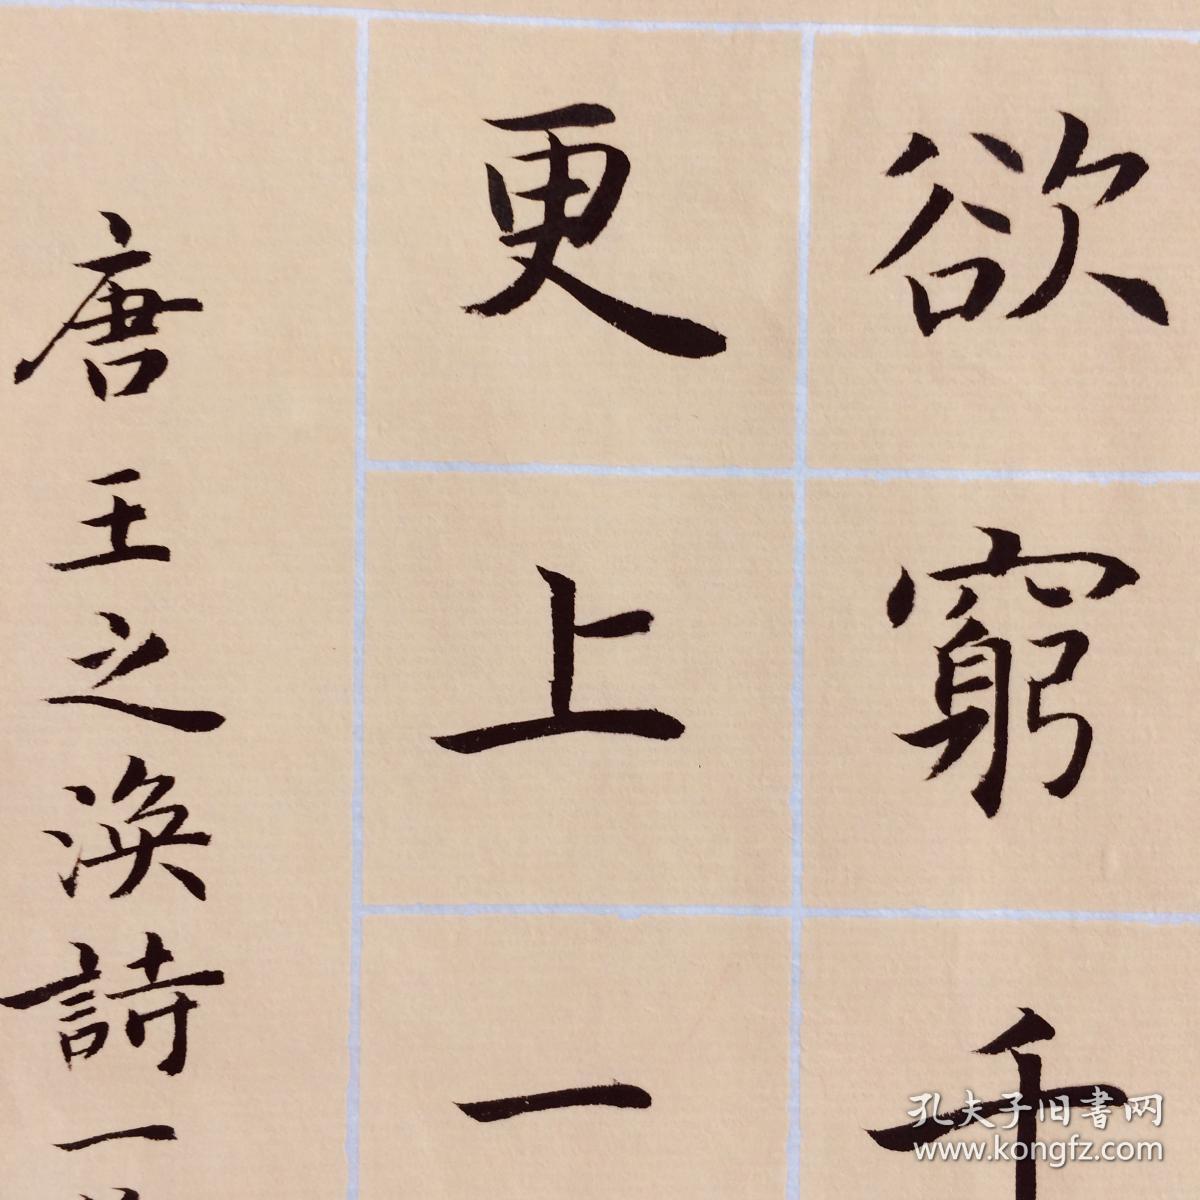 欲窮千
更上一
唐王之渙詩一
孔夫子旧書网
www.kongfz.com